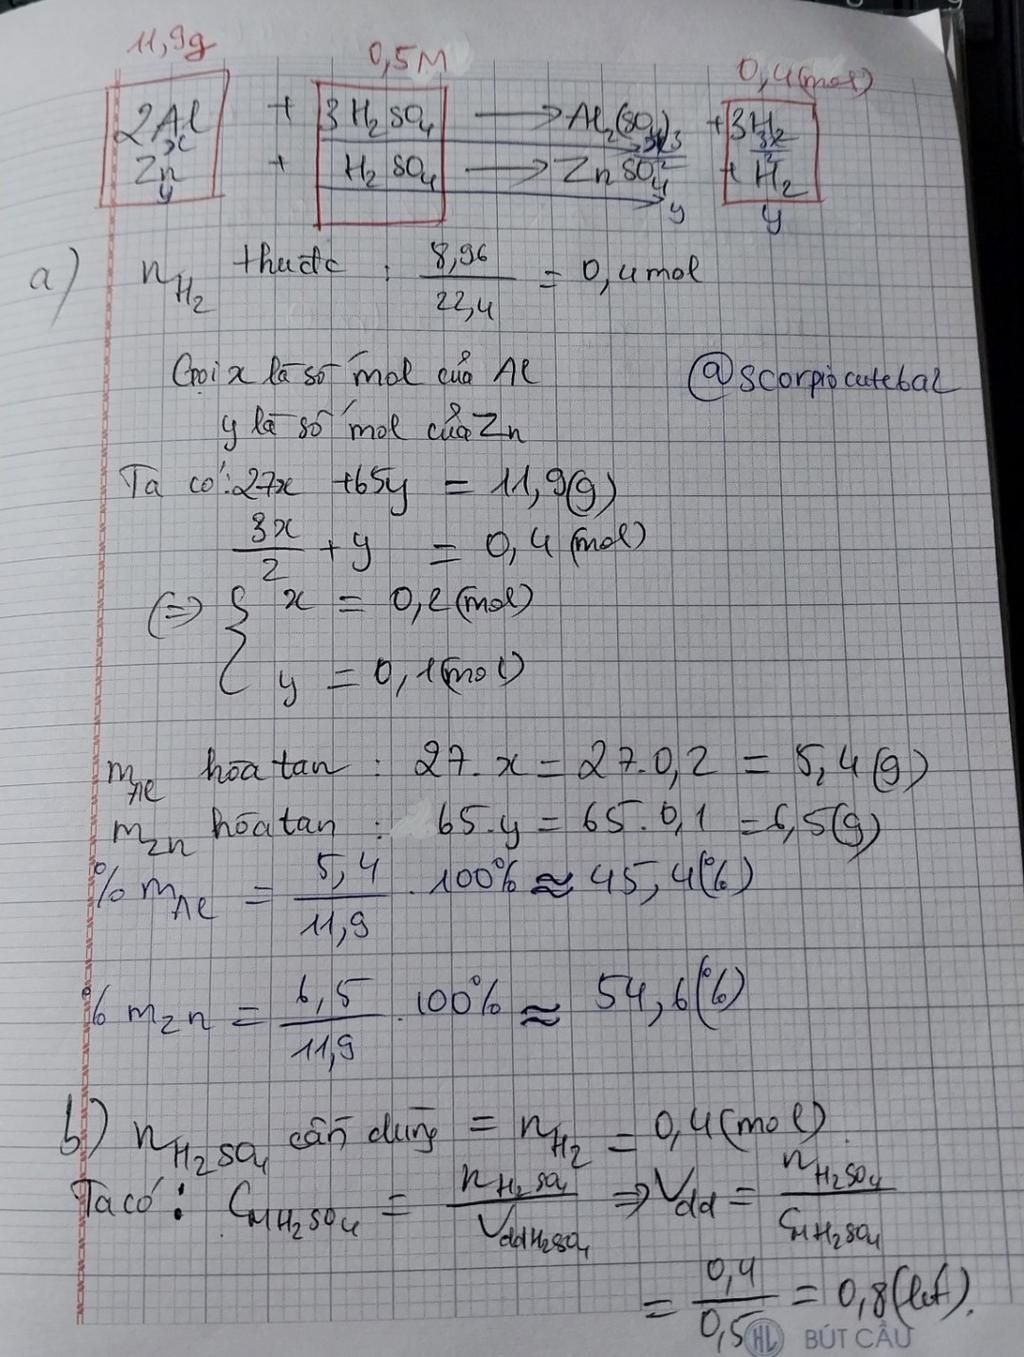 11,9g 0,5M 0,4(mol)
2Al + 3H₂SO₄ ⟶ Al₂(SO₄)₃ + 3H₂
x 3x/2
Zn + H₂SO₄ ⟶ ZnSO₄ + H₂
y y y
a) nH₂ thu đc : 8,96/22,4 = 0,4 mol
Gọi x là số mol của Al @scorpiocutebal
y là số mol của Zn
Ta có: 27x + 65y = 11,9(g)
3x/2 + y = 0,4 (mol)
(=> { x = 0,2 (mol)
y = 0,1 (mol)
mAl hòa tan : 27.x = 27.0,2 = 5,4 (g)
mZn hòa tan : 65.y = 65.0,1 = 6,5(g)
% mAl = 5,4/11,9 . 100% ≈ 45,4(%)
% mZn = 6,5/11,9 . 100% ≈ 54,6(%)
b) nH₂SO₄ cần dùng = nH₂ = 0,4 (mol).
Ta có : CMH₂SO₄ = nH₂SO₄/VddH₂SO₄ => Vdd = nH₂SO₄/CMH₂SO₄
= 0,4/0,5 = 0,8 (lít).
HL BÚT CẦU